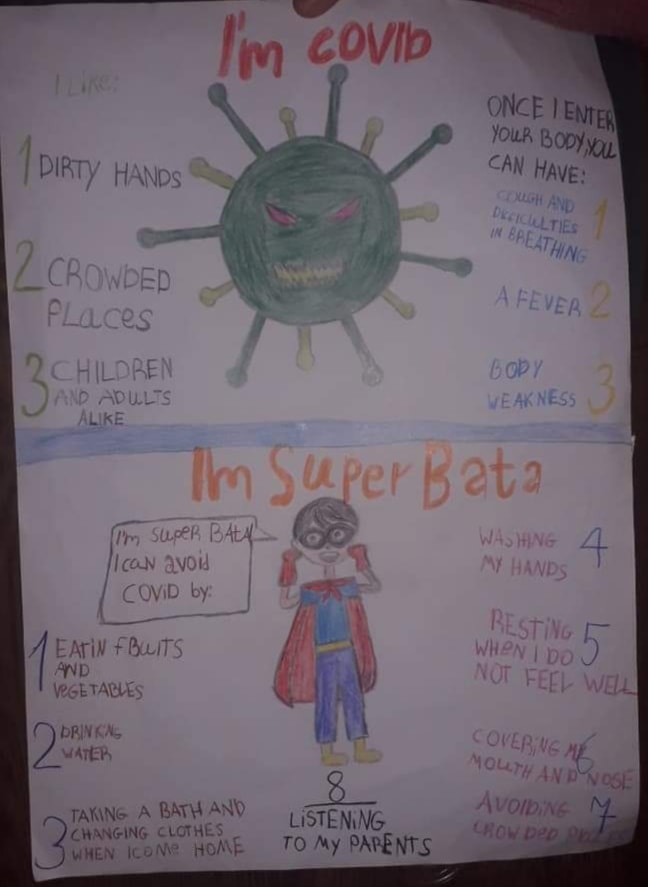 I'm COVID
I LIKE:
1 DIRTY HANDS
2 CROWDED
PLaces
3 CHILDREN
AND ADULTS
ALIKE
ONCE I ENTER
YOUR BODY,YOU
CAN HAVE:
COUGH AND
DIFFICULTIES 1
IN BREATHING
A FEVER 2
BODY
WEAKNESS 3
I'm SuperBata
I'm SupeR BATA
I can avoid
COViD by:
1 EATiN fRUiTS
AND
VEGETABLES
2 DRiNKiNG
WATER
3 TAKING A BATH AND
CHANGING CLOTHES
WHEN ICOME HOME
WASHING 4
MY HANDS
RESTiNG 5
WHeN I DO
NOT FEEL WELL
COVERiNG MY 6
MOUTH AND NOSE
AVOiDiNG 7
CROWDED
8
LiSTENiNG
TO MY PARENTS